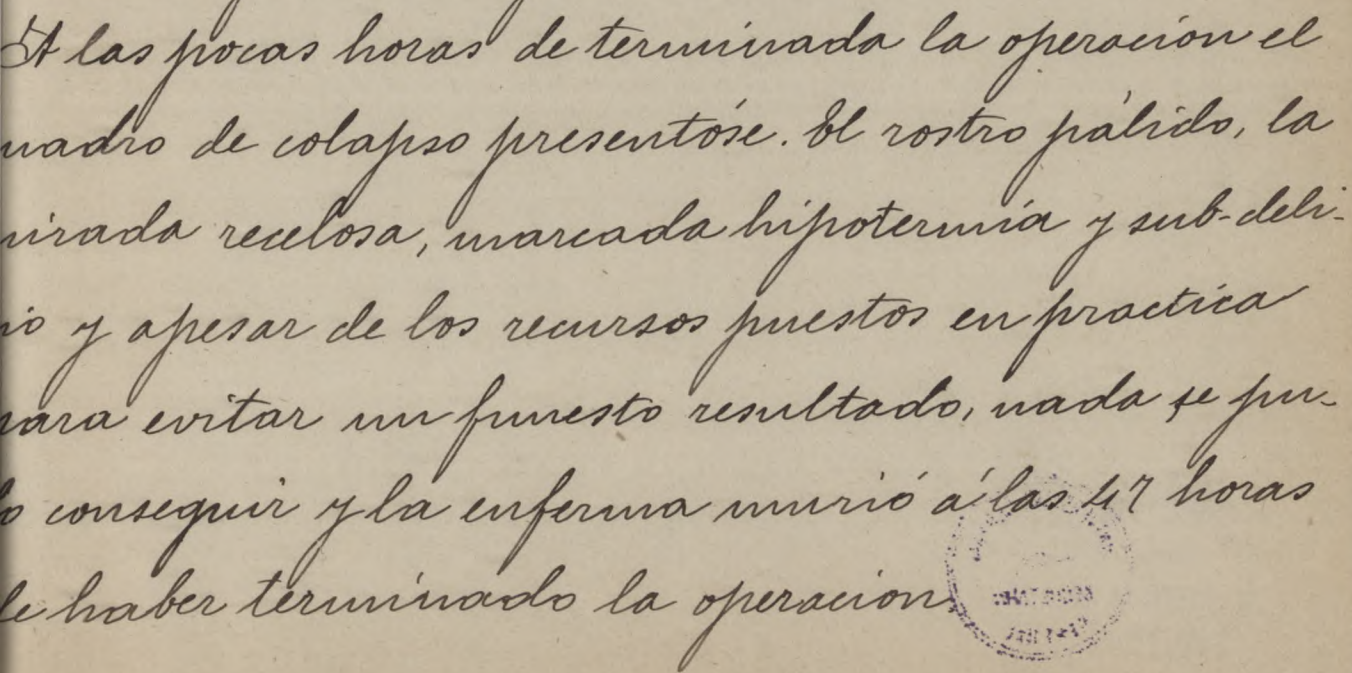 A las pocas horas de terminada la operacion el
uadro de colapso presentóse. El rostro pálido, la
irada recelosa, marcada hipotermia y sub-deli-
io y apesar de los recursos puestos en practica
para evitar un funesto resultado, nada se pu-
do conseguir y la enferma murió á las 47 horas
de haber terminado la operacion.